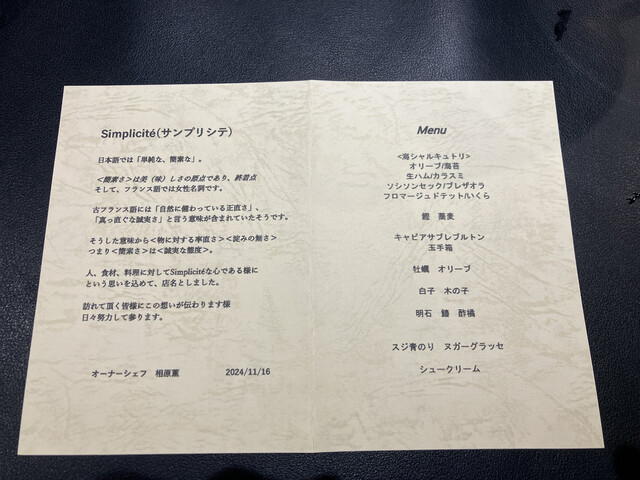 Simplicité(サンプリシテ)
日本語では「単純な、簡素な」。
＜簡素さ＞は美（味）しさの原点であり、終着点
そして、フランス語では女性名詞です。
古フランス語には「自然に備わっている正直さ」、
「真っ直ぐな誠実さ」と言う意味が含まれていたそうです。
そうした意味から＜物に対する率直さ＞＜淀みの無さ＞
つまり＜簡素さ＞は＜誠実な態度＞。
人、食材、料理に対してSimplicitéな心である様に
という思いを込めて、店名としました。
訪れて頂く皆様にこの想いが伝わります様
日々努力して参ります。
オーナーシェフ　相原薫　2024/11/16
Menu
<海シャルキュトリ>
オリーブ/海苔
生ハム/カラスミ
ソシソンセック/ブレザオラ
フロマージュドテット/いくら
鰹　蕎麦
キャビアサブレブルトン
玉手箱
牡蠣　オリーブ
白子　木の子
明石　酢橘
スジ青のり　ヌガーグラッセ
シュークリーム